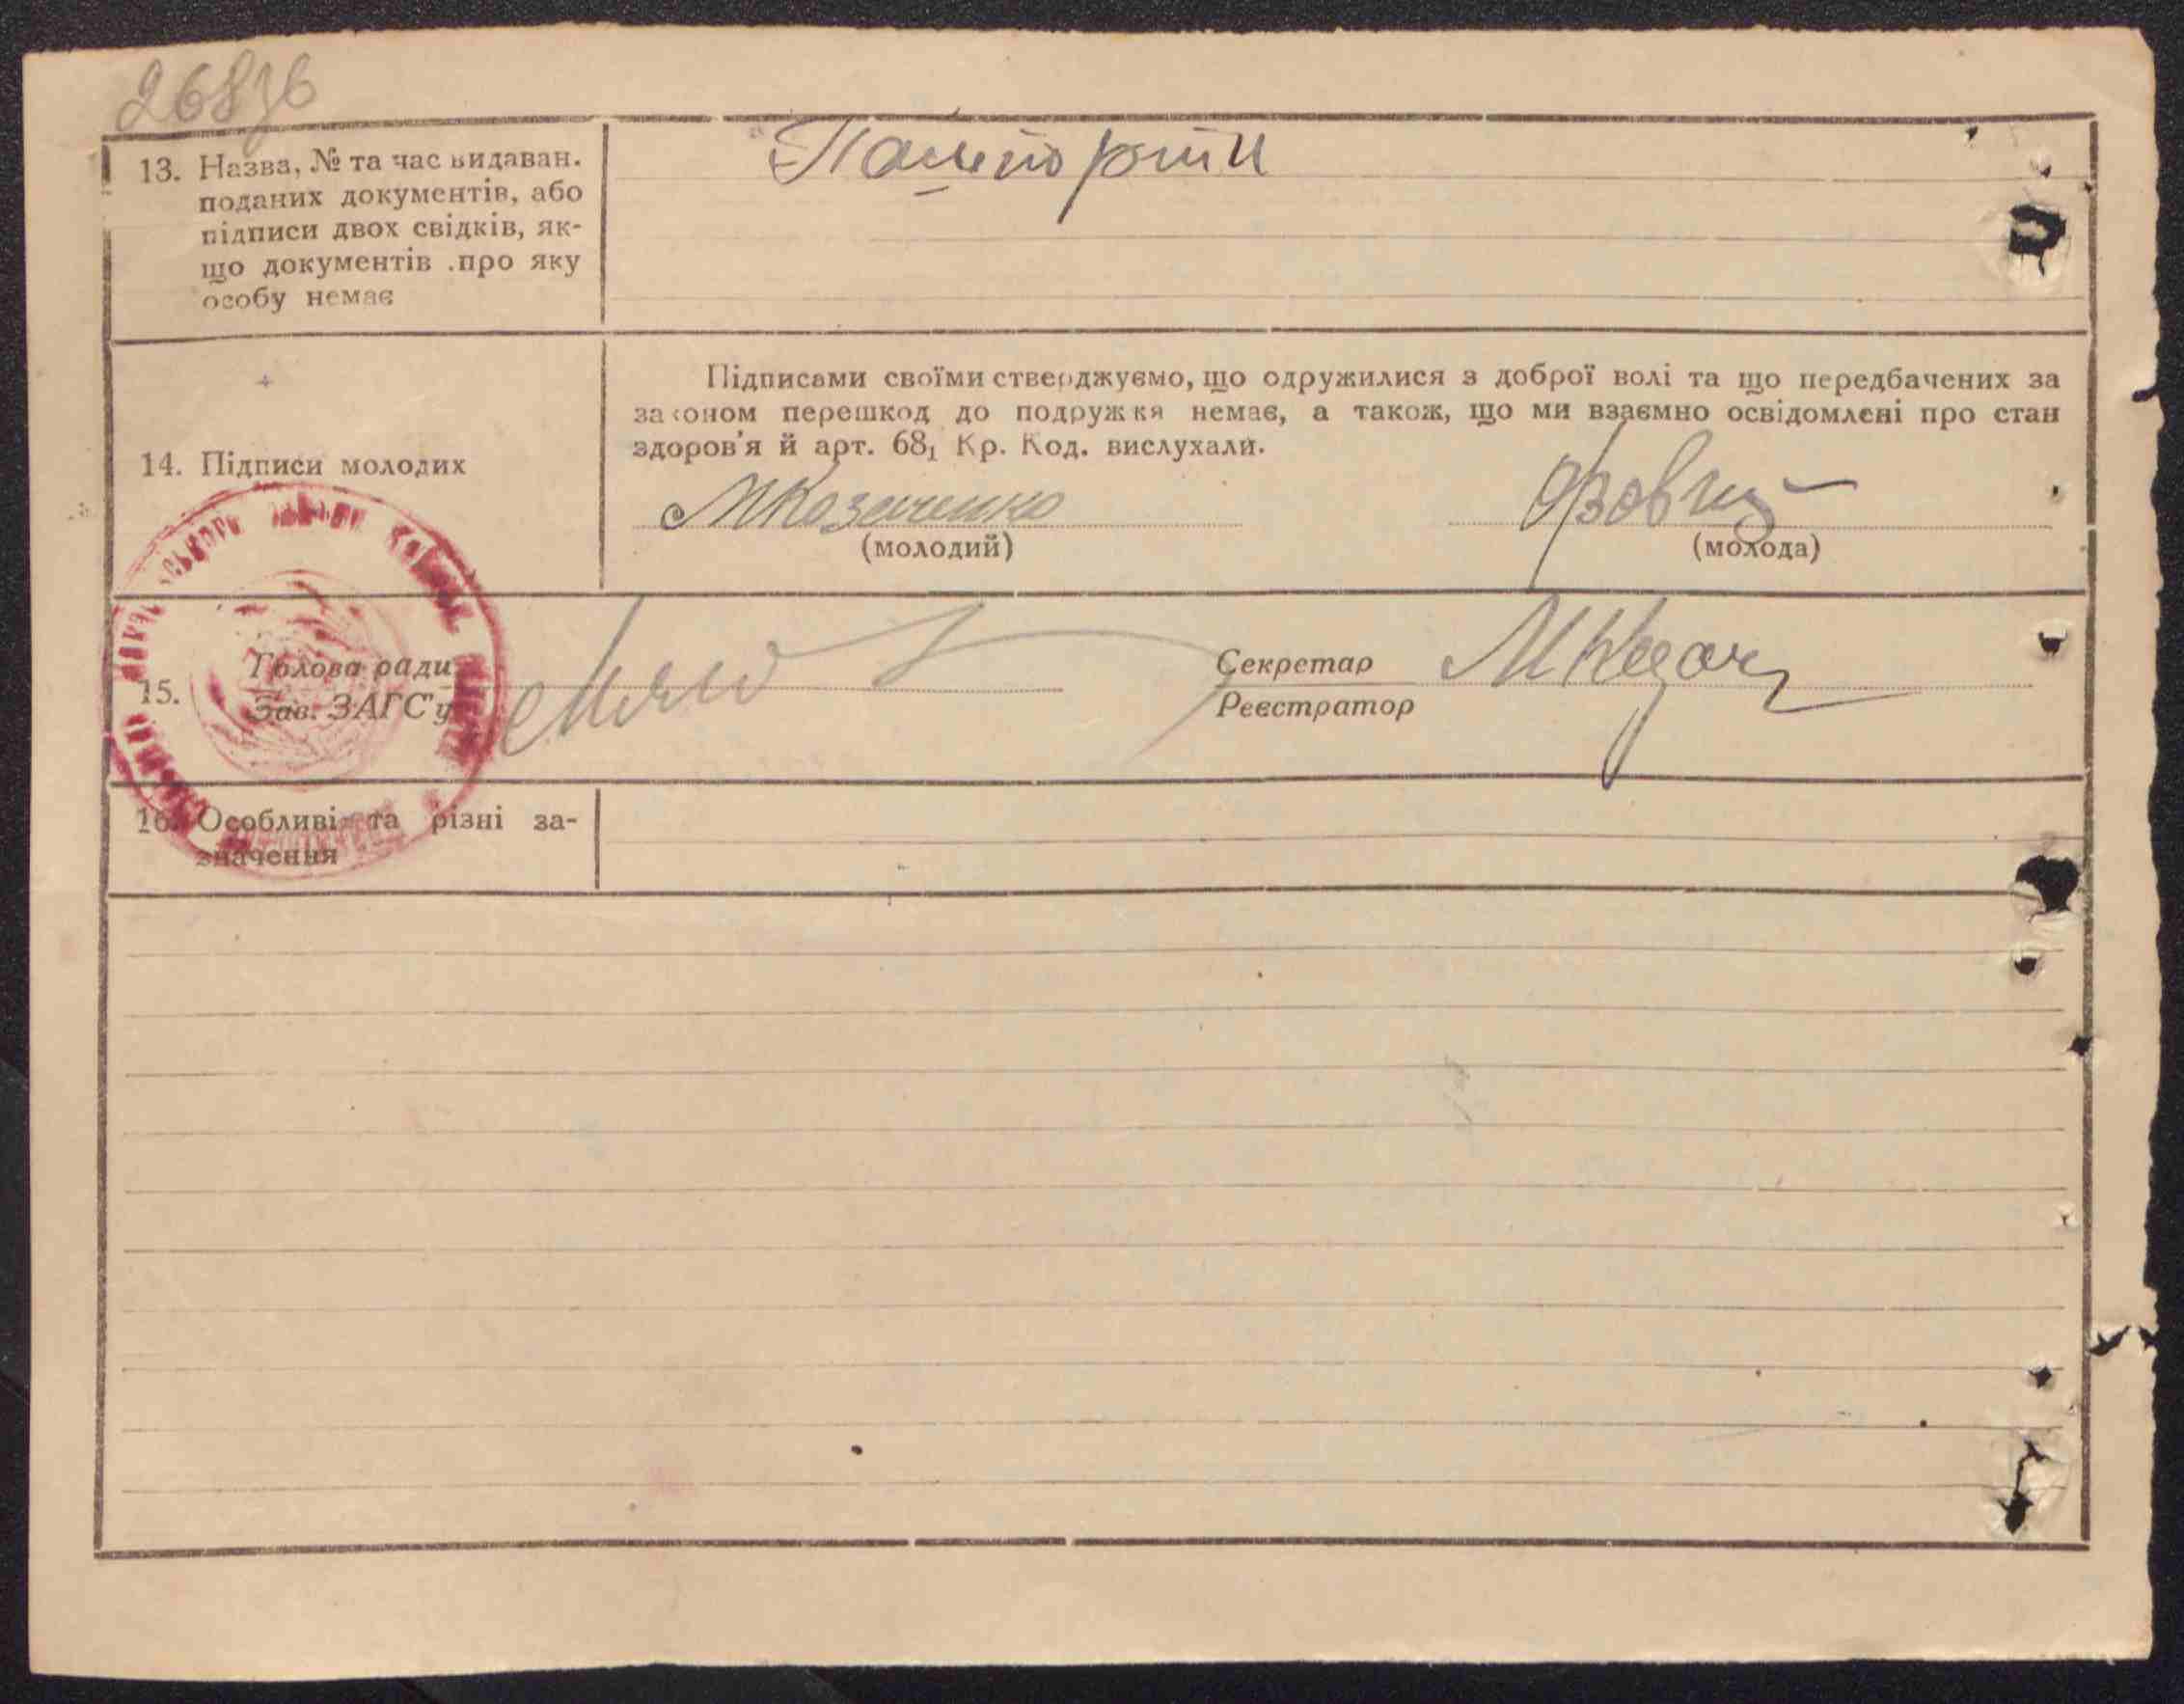 13. Назва, № та час видаван.
поданих документів, або
підписи двох свідків, як-
що документів про яку
особу немає
Пашпорти
Підписами своїми стверджуємо, що одружилися з доброї волі та що передбачених за
законом перешкод до подружжя немає, а також, що ми взаємно освідомлені про стан
здоров'я й арт. 68₁ Кр. Код. вислухали.
14. Підписи молодих
МКозаченко
(молодий)
(молода)
15.
Голова ради
Зав. ЗАГС'у
Секретар
Реєстратор
16. Особливі та різні за-
значення